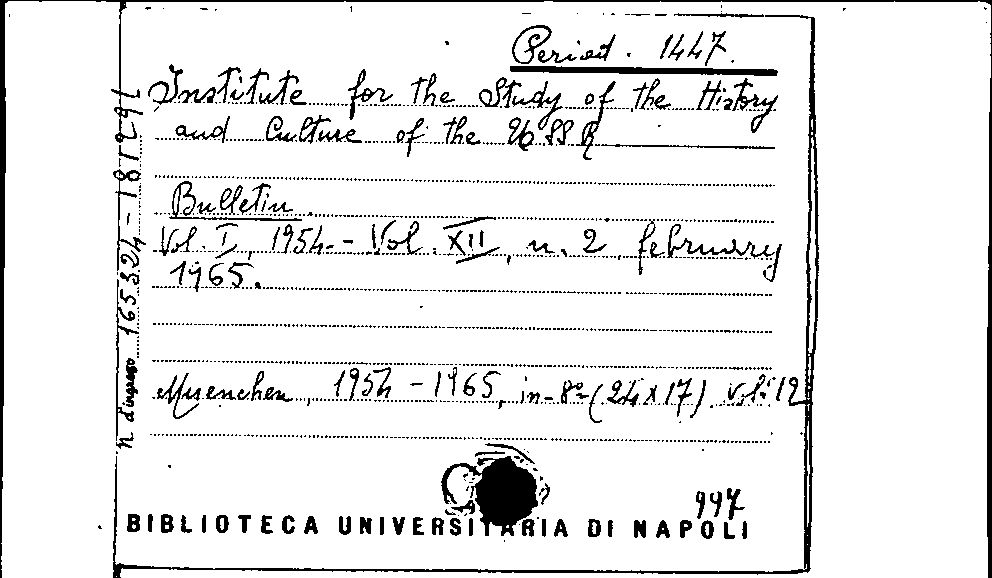 Period. 1447.
Institute for the Study of the History
and Culture of the USSR.
Bulletin.
Vol. I, 1954.- Vol. XII, n. 2, february
1965.
Muenchen, 1954 - 1965, in-8º (24x17). Vol. 12
n. d'ingresso 165324-181291
997
BIBLIOTECA UNIVERSITARIA DI NAPOLI